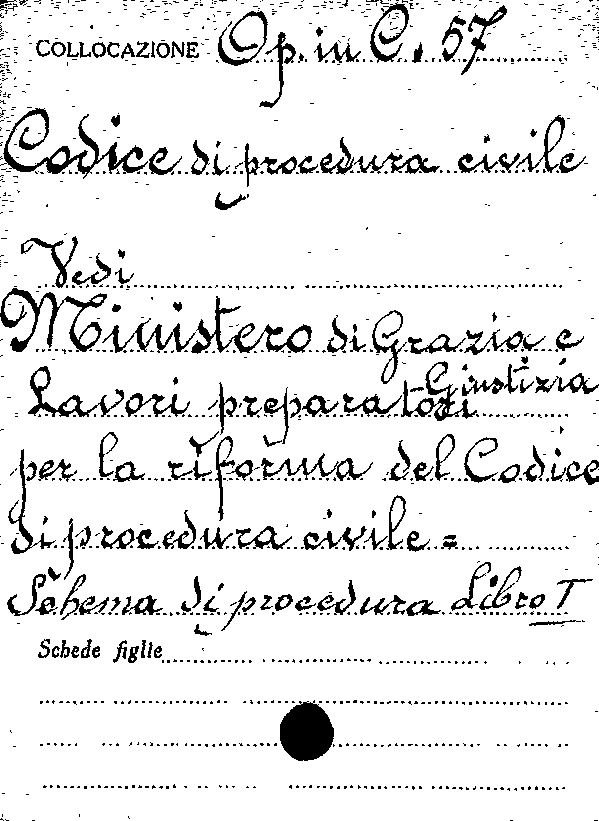 COLLOCAZIONE Op. in C. 57
Codice di procedura civile
Vedi
Ministero di Grazia e
Giustizia
Lavori preparatori
per la riforma del Codice
di procedura civile =
Schema di procedura Libro I
Schede figlie